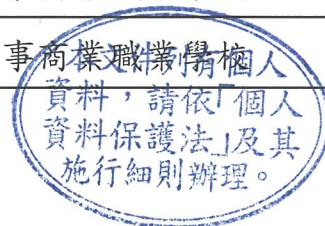 事商業職業學校
本文件列有個人
資料，請依「個人
資料保護法」及其
施行細則辦理。